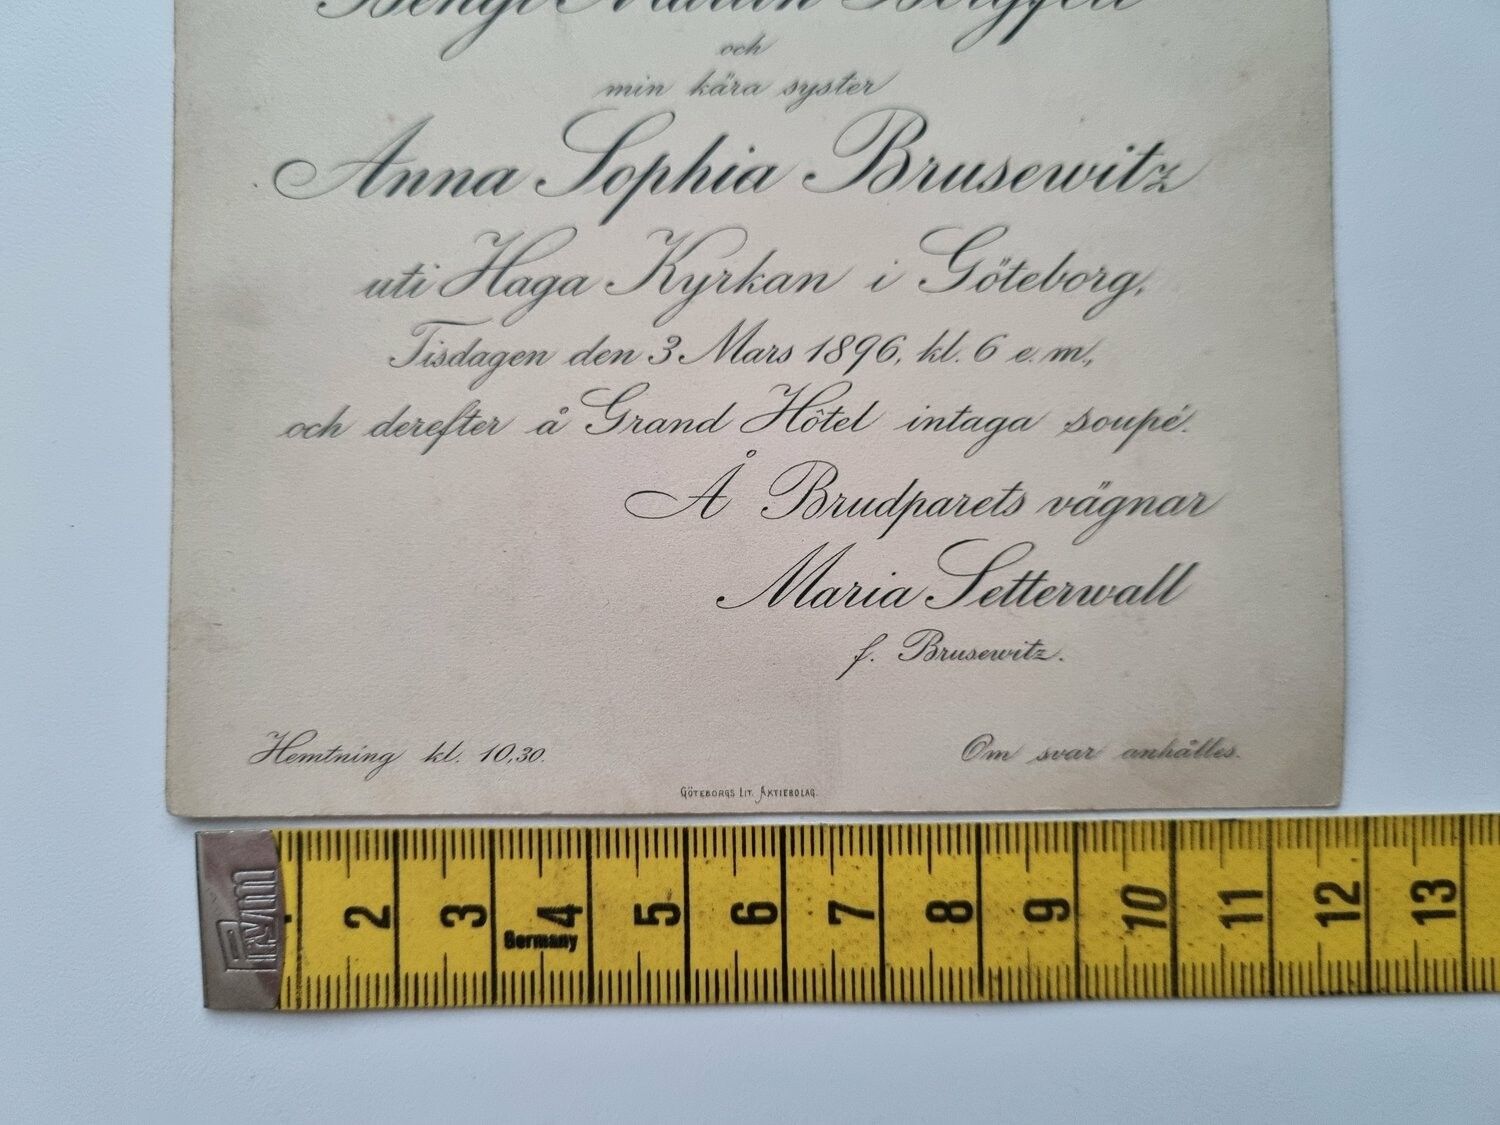 Bengt Martin
och
min kära syster
Anna Sophia Brusewitz
uti Haga Kyrkan i Göteborg,
Tisdagen den 3 Mars 1896, kl. 6 e. m.,
och derefter å Grand Hôtel intaga soupé.
Å Brudparets vägnar
Maria Setterwall
f. Brusewitz.
Hemtning kl. 10,30.
Om svar anhålles.
GÖTEBORGS LIT. AKTIEBOLAG.
Prym
2 3 4 5 6 7 8 9 10 11 12 13
Germany